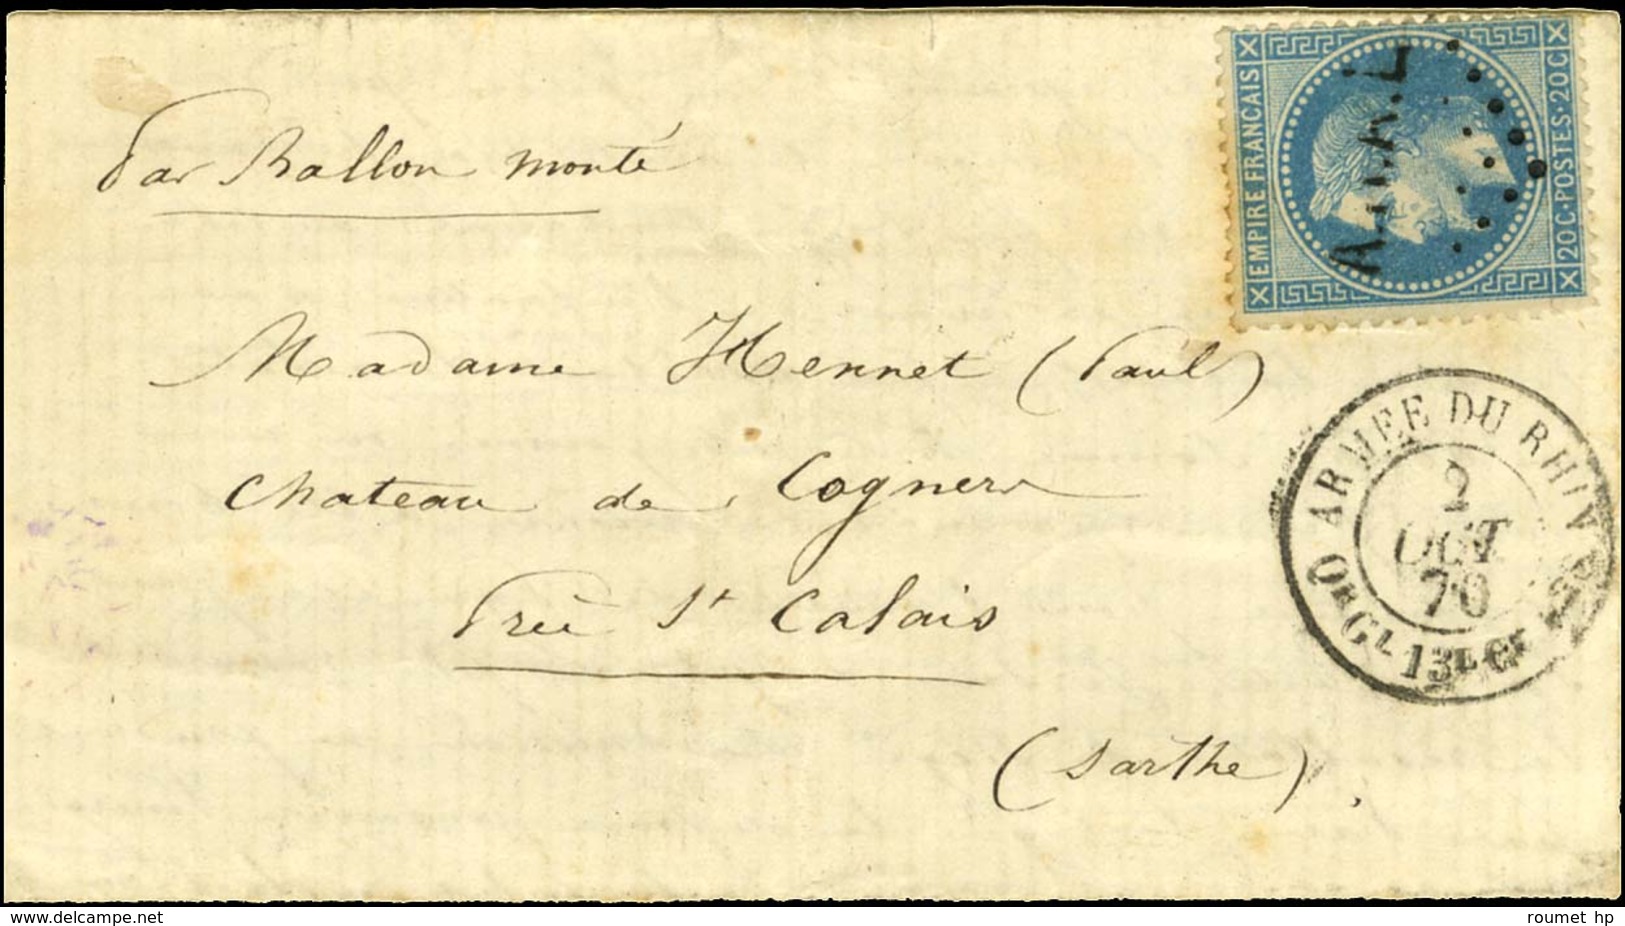 Par Ballon monté
EMPIRE FRANCAIS
20 C · POSTES · 20 C
Madame Hennet (Paul)
Chateau de Cogners
Près St Calais
(Sarthe).
ARMEE DU RHIN
2
OCT.
70
Qr GL 13E
delcampe.net
roumet hp